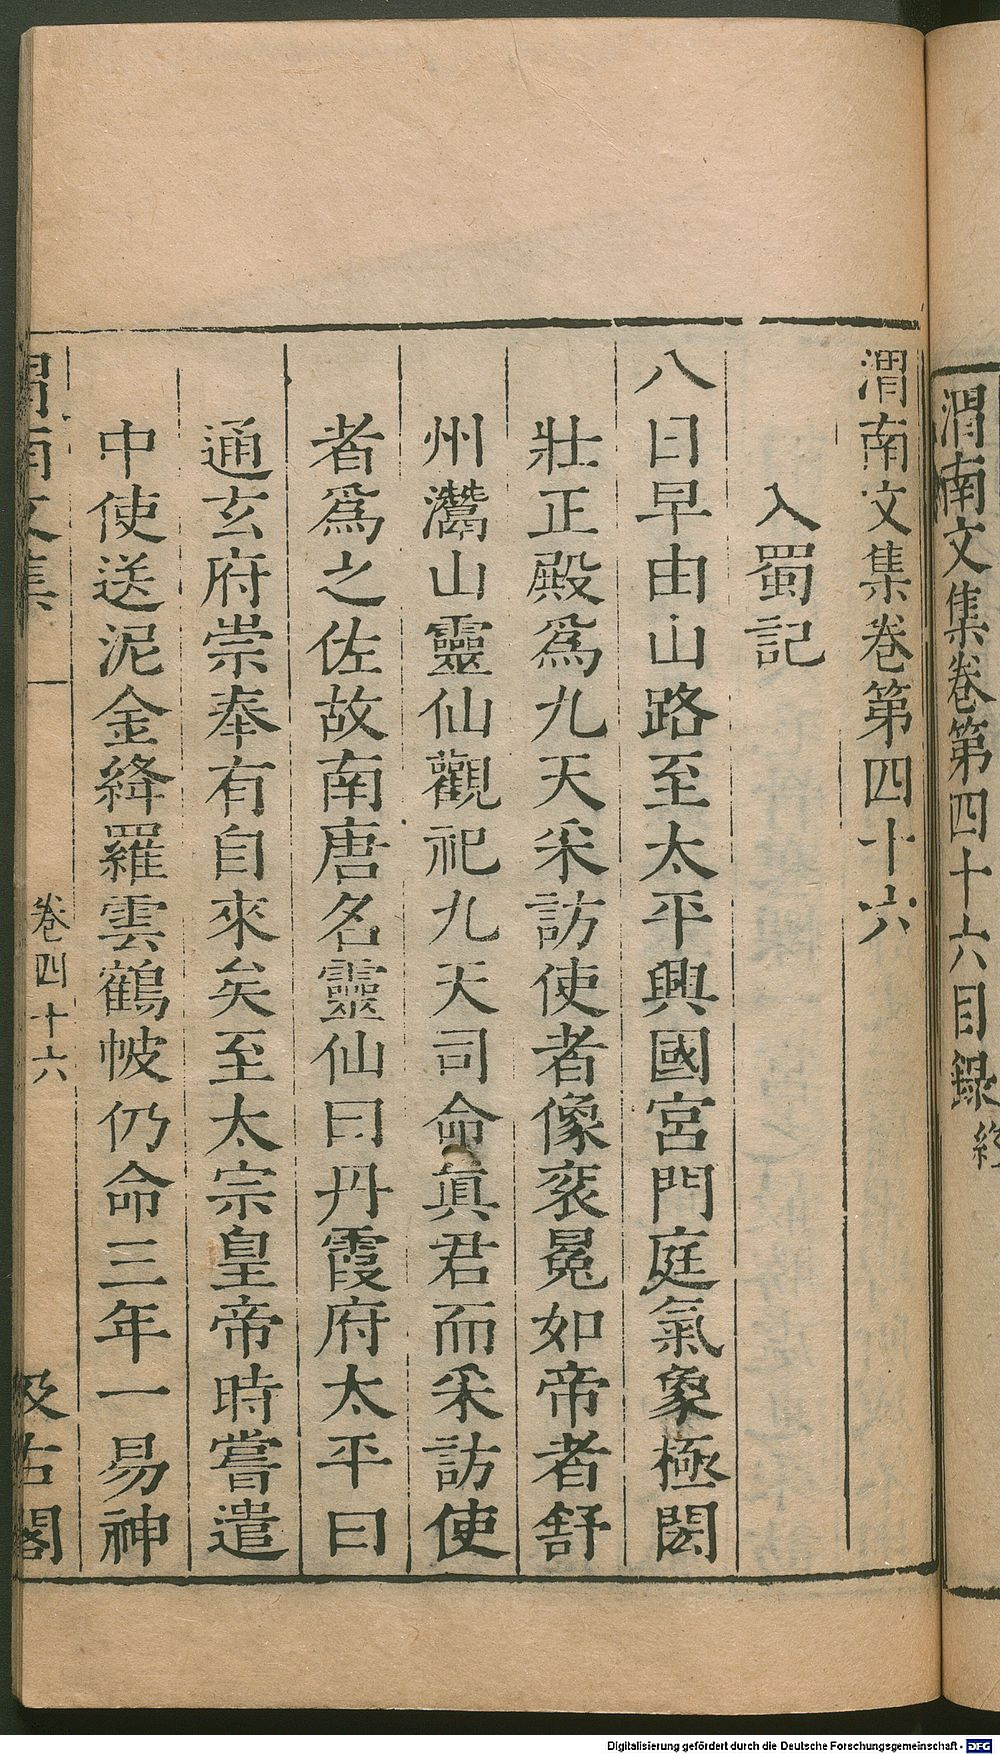 渭南文集卷第四十六目錄終
渭南文集卷第四十六
入蜀記
八日早由山路至太平興國宮門庭氣象極閎
壯正殿爲九天采訪使者像袞冕如帝者舒
州灊山靈仙觀祀九天司命眞君而采訪使
者爲之佐故南唐名靈仙曰丹霞府太平曰
通玄府崇奉有自來矣至太宗皇帝時嘗遣
中使送泥金絳羅雲鶴帔仍命三年一易神
渭南文集
卷四十六
汲古閣
Digitalisierung gefördert durch die Deutsche Forschungsgemeinschaft - DFG